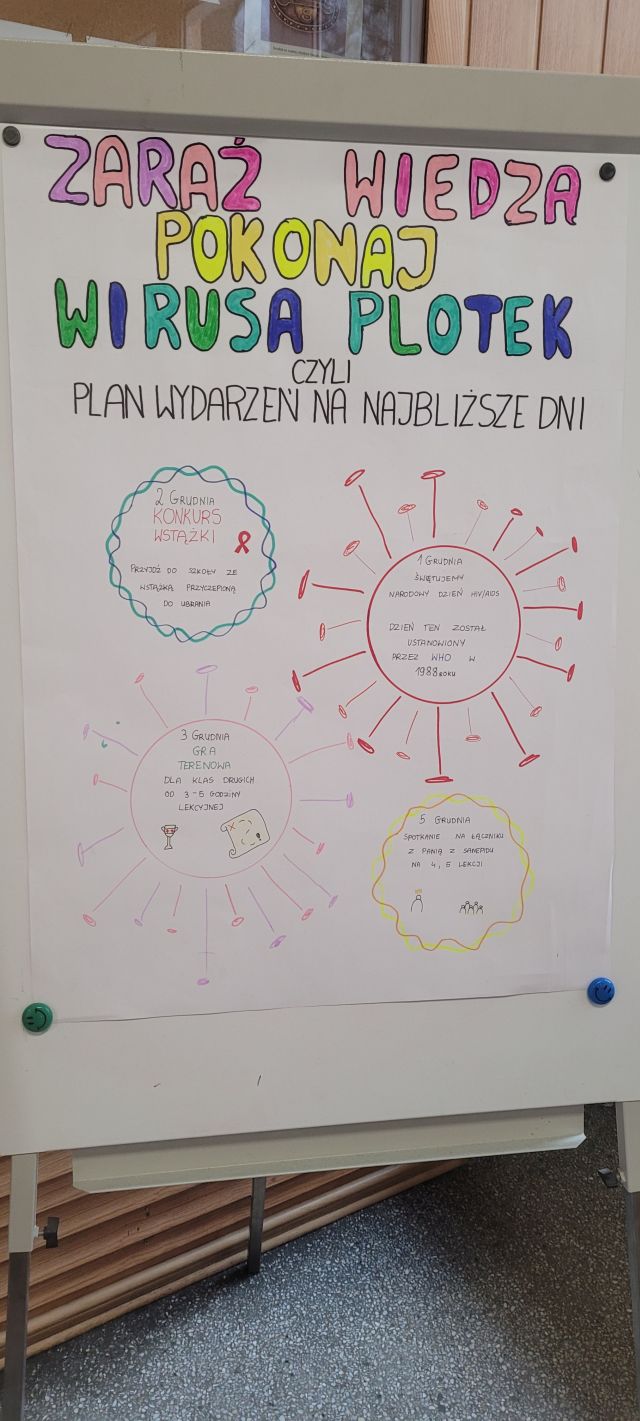 ZARAŹ WIEDZĄ
POKONAJ
WIRUSA PLOTEK
CZYLI
PLAN WYDARZEŃ NA NAJBLIŻSZE DNI
2 GRUDNIA
KONKURS
WSTĄŻKI
PRZYJDŹ DO SZKOŁY ZE
WSTĄŻKĄ PRZYCZEPIONĄ
DO UBRANIA
1 GRUDNIA
ŚWIĘTUJEMY
NARODOWY DZIEŃ HIV/AIDS
DZIEŃ TEN ZOSTAŁ
USTANOWIONY
PRZEZ WHO W
1988 ROKU
3 GRUDNIA
GRA
TERENOWA
DLA KLAS DRUGICH
OD 3-5 GODZINY
LEKCYJNEJ
5 GRUDNIA
SPOTKANIE NA ŁĄCZNIKU
Z PANIĄ Z SANEPIDU
NA 4, 5 LEKCJI